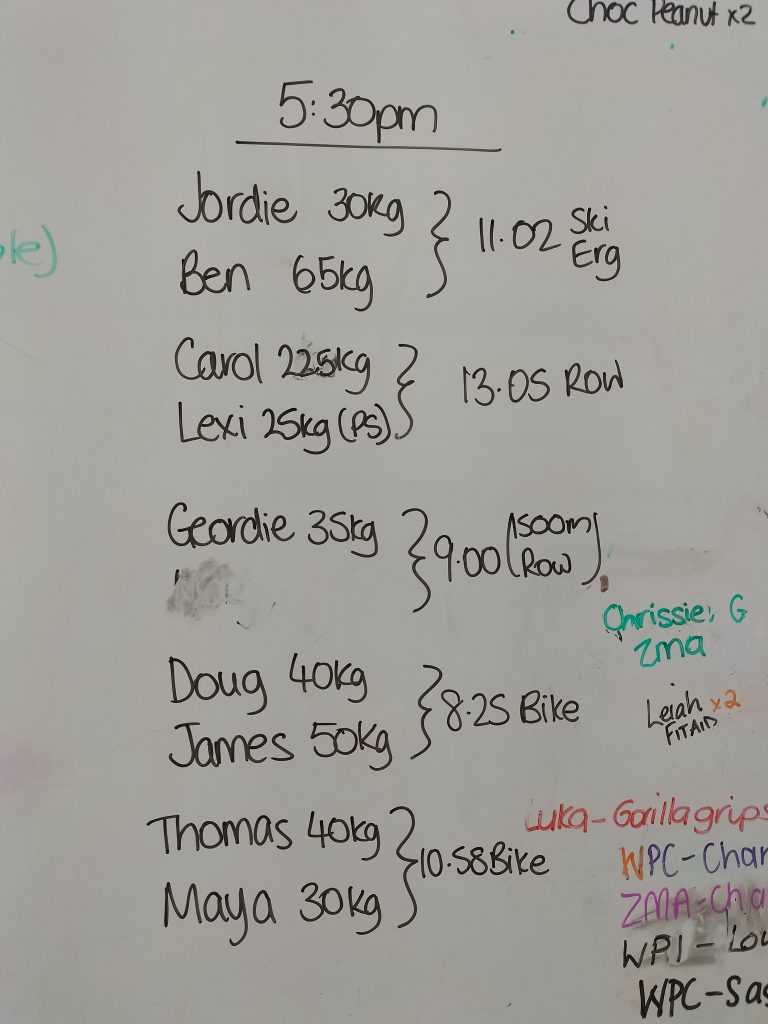 Choc Peanut x2
5:30pm
Jordie 30kg
Ben 65kg
11.02 Ski Erg
Carol 22.5kg
Lexi 25kg (PS)
13.05 Row
Geordie 35kg
9.00 (1500m Row)
Chrissie, G
Zma
Doug 40kg
James 50kg
8.25 Bike
Leiah x2
FITAID
Luka - Gorilla grips
Thomas 40kg
Maya 30kg
10.58 Bike
WPC - Char
ZMA - Cha
WPI - Lou
WPC - Sas